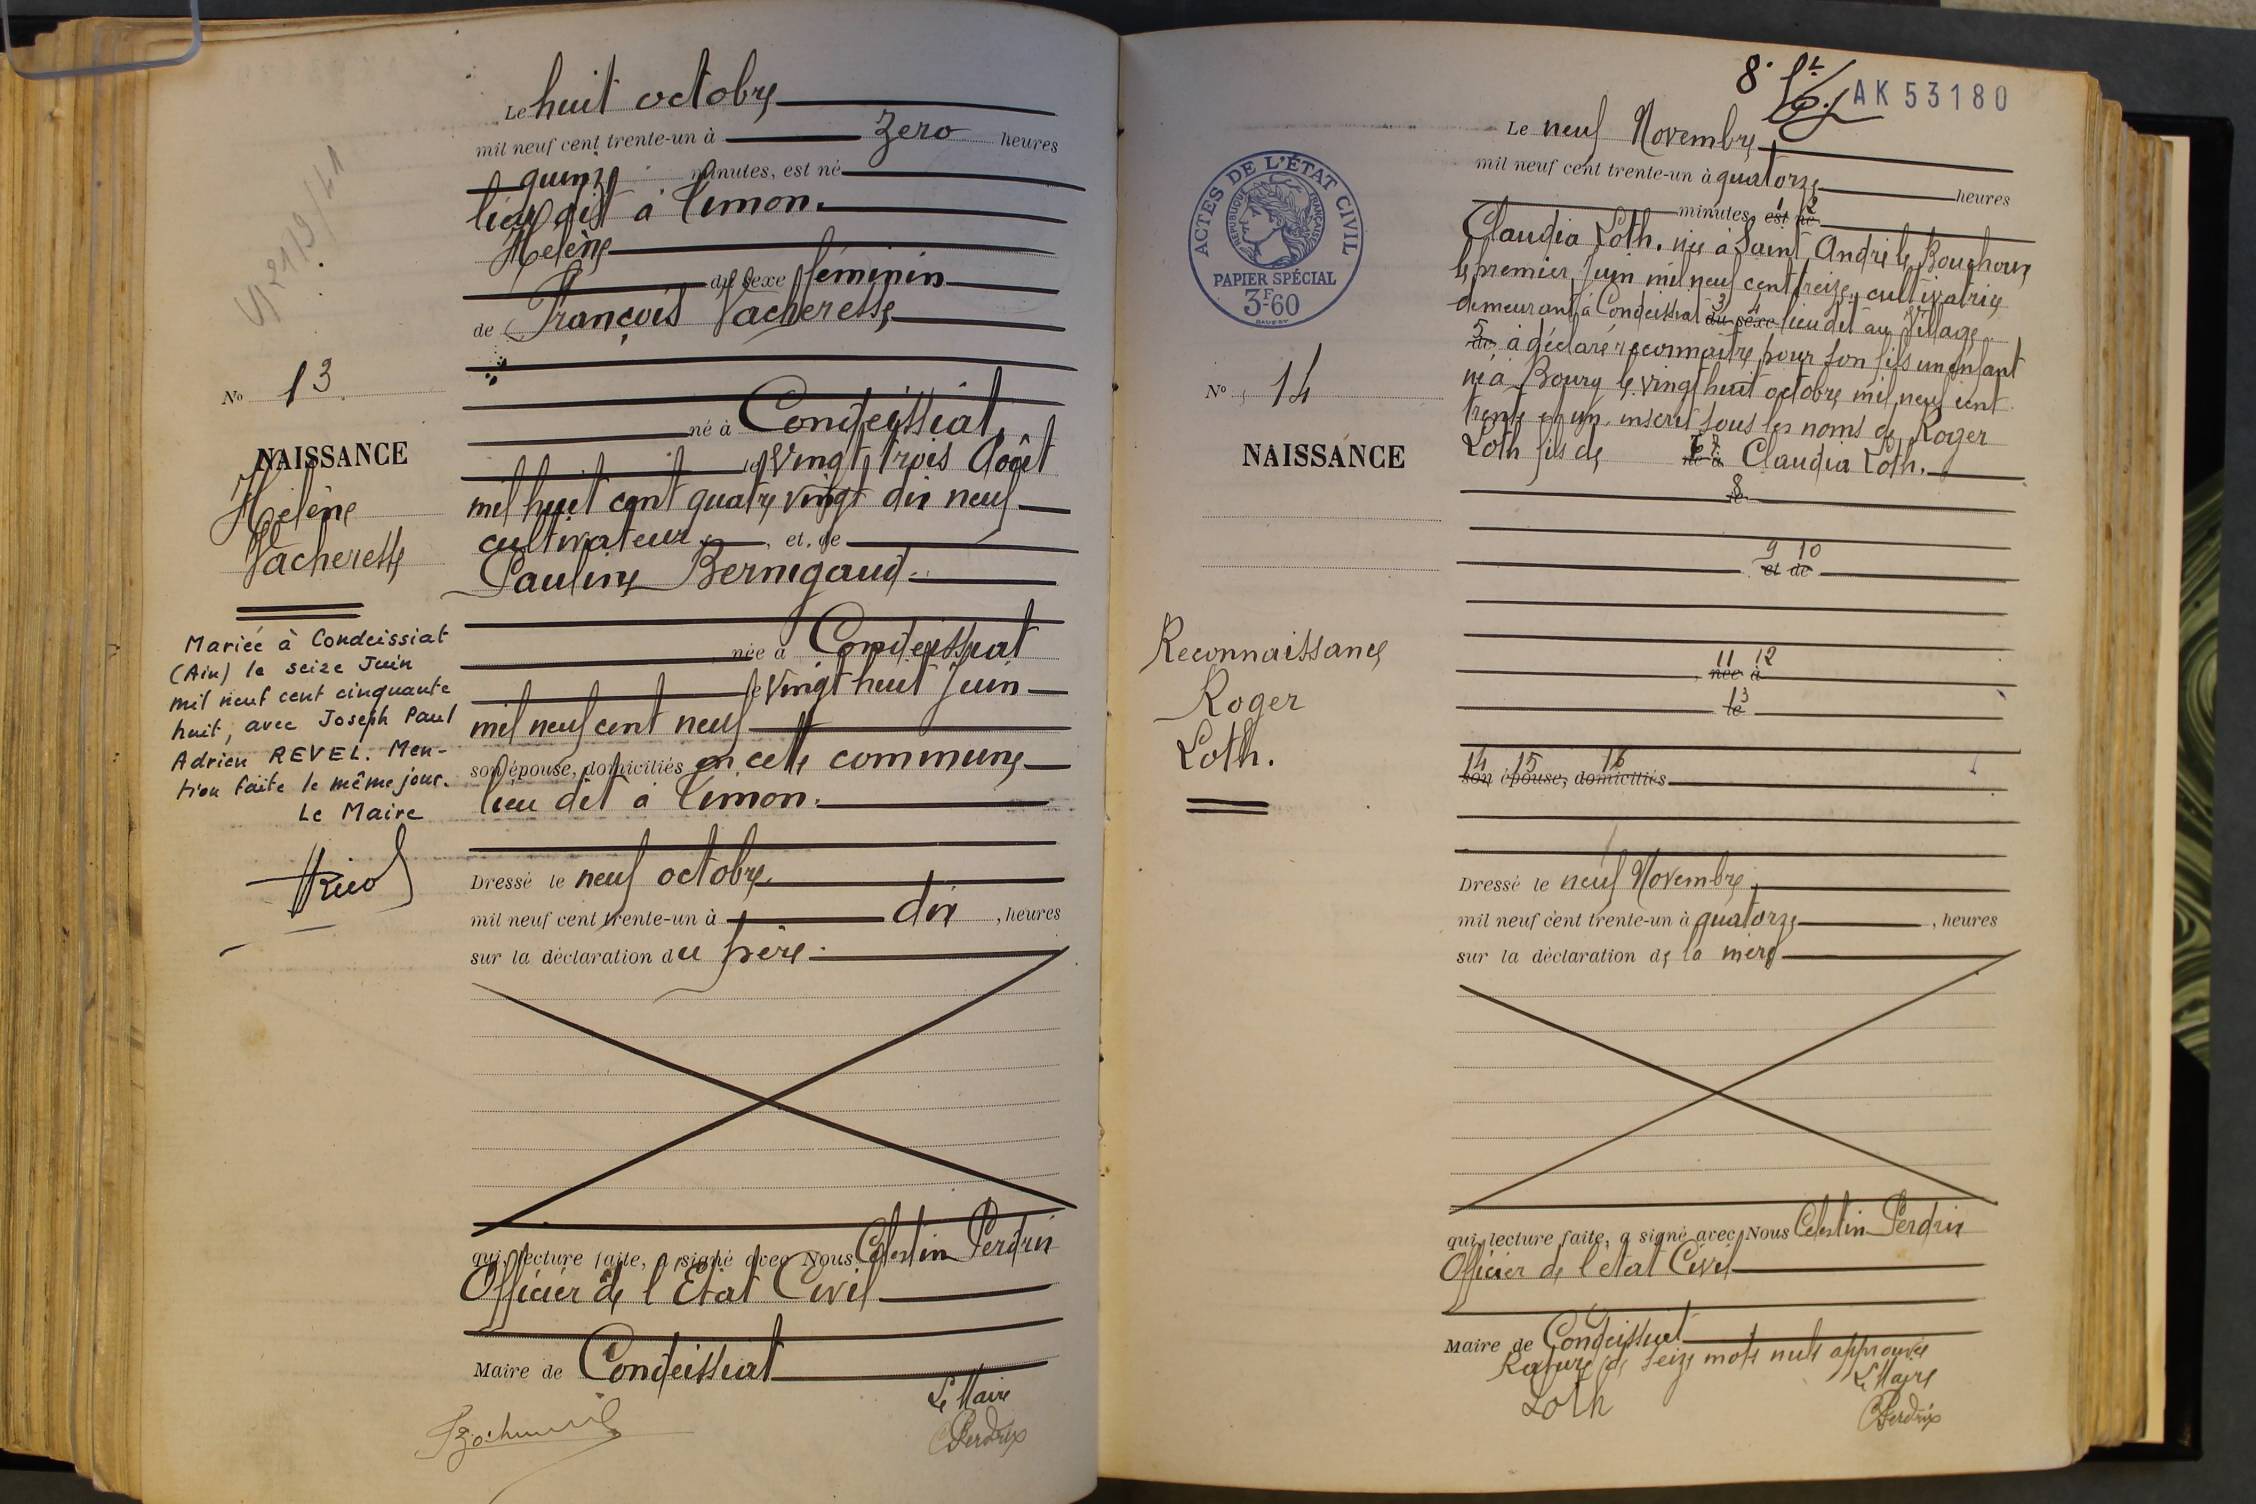 Le huit octobre
mil neuf cent trente-un à zero heures
quinze minutes, est né
lieu dit à Limon.
Hélène
du sexe féminin
de François Vacheresse
né à Condeissiat,
le vingt trois Août
mil huit cent quatre vingt dix neuf
cultivateur, et de
Pauline Bernigaud.
née à Condeissiat
le vingt huit Juin
mil neuf cent neuf
son épouse, domiciliés en cette commune
lieu dit à Limon.
Dressé le neuf octobre
mil neuf cent trente-un à dix, heures
sur la déclaration du père.
qui, lecture faite, a signé avec Nous Célestin Perdrix
Officier de l'Etat Civil
Maire de Condeissiat
Le Maire
CPerdrix
No 13
NAISSANCE
Hélène
Vacheresse
Mariée à Condeissiat
(Ain) le seize Juin
mil neuf cent cinquante
huit, avec Joseph Paul
Adrien REVEL. Men-
tion faite le même jour.
Le Maire
8.
AK 53180
ACTES DE L'ÉTAT CIVIL
RÉPUBLIQUE FRANÇAISE
PAPIER SPÉCIAL
3F-60
No 14
NAISSANCE
Reconnaissance
Roger
Loth.
Le neuf Novembre
mil neuf cent trente-un à quatorze heures
1 2
minutes, est né
Claudia Loth. née à Saint André le Bouchoux
le premier Juin mil neuf cent treize, cultivatrice
demeurant à Condeissiat 3 4 du sexe lieu dit au Village
5 de, a déclaré reconnaître pour son fils un enfant
né à Bourg le vingt huit octobre mil neuf cent
trente et un, inscrit sous les noms de Roger
Loth fils de 6 7 né à Claudia Loth.
8
le
9 10
et de
11 12
née à
13
le
14 15 16
son épouse, domiciliés
Dressé le neuf Novembre
mil neuf cent trente-un à quatorze, heures
sur la déclaration de la mère
qui, lecture faite, a signé avec Nous Célestin Perdrix
Officier de l'état Civil
Maire de Condeissiat
Rature de seize mots nuls approuvée
Le Maire
Loth
CPerdrix